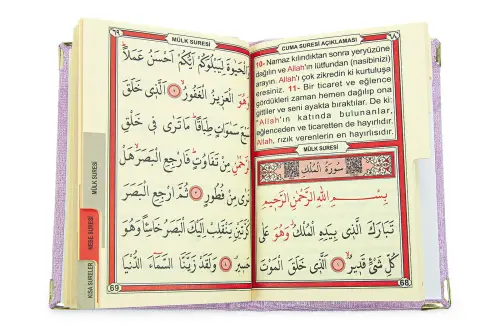 CUMA SURESİ AÇIKLAMASI ٦٨
10- Namaz kılındıktan sonra yeryüzüne
dağılın ve Allah'ın lütfundan (nasibinizi)
arayın. Allah'ı çok zikredin ki kurtuluşa
eresiniz. 11- Bir ticaret ve eğlence
gördükleri zaman hemen dağılıp ona
gittiler ve seni ayakta bıraktılar. De ki:
"Allah'ın katında bulunanlar,
eğlenceden ve ticaretten de hayırlıdır.
Allah, rızık verenlerin en hayırlısıdır.
MÜLK SURESİ
سُورَةُ الْمُلْكِ
بِسْمِ اللّٰهِ الرَّحْمٰنِ الرَّحِيمِ
تَبَارَكَ الَّذِي بِيَدِهِ الْمُلْكُ وَهُوَ عَلٰى
كُلِّ شَيْءٍ قَدِيرٌ ١ اَلَّذِي خَلَقَ الْمَوْتَ
68
٦٩ MÜLK SURESİ
وَالْحَيٰوةَ لِيَبْلُوَكُمْ اَيُّكُمْ اَحْسَنُ عَمَلًا
وَهُوَ الْعَزِيزُ الْغَفُورُ ٢ اَلَّذِي خَلَقَ
سَبْعَ سَمٰوَاتٍ طِبَاقًا مَا تَرٰى فِي خَلْقِ
الرَّحْمٰنِ مِنْ تَفَاوُتٍ فَارْجِعِ الْبَصَرَ هَلْ
تَرٰى مِنْ فُطُورٍ ٣ ثُمَّ ارْجِعِ الْبَصَرَ
كَرَّتَيْنِ يَنْقَلِبْ اِلَيْكَ الْبَصَرُ خَاسِئًا وَهُوَ
حَسِيرٌ ٤ وَلَقَدْ زَيَّنَّا السَّمَاءَ الدُّنْيَا
69
MÜLK SURESİ
NEBE SURESİ
KISA SURELER